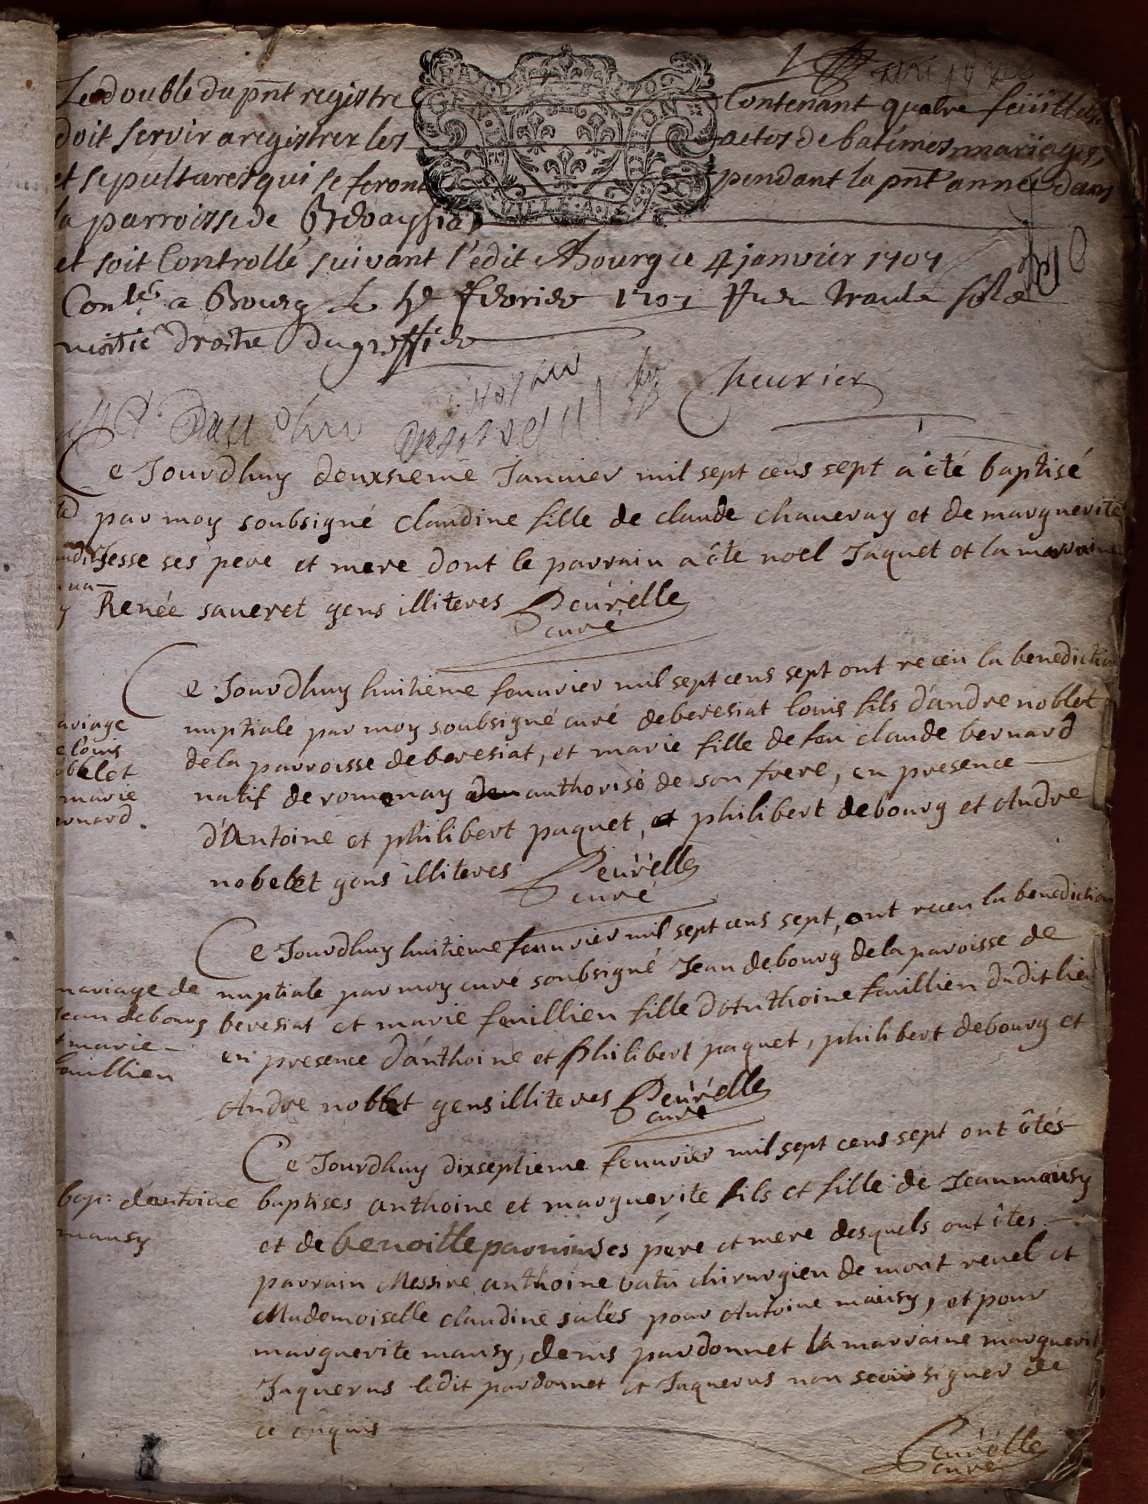 Le double du pnt registre Contenant quatre feüillets
doit servir a registrer les actes de batêmes mariages,
et sepultures qui se feront pendant la pnt année dans
la parroisse de
et soit Controllé suivant l'édit a Bourg ce 4 janvier 1707
a Bourg le
moitié droitte du greffier
Cheurier
Ce Jourdhuy deuxsieme Janvier mil sept cens sept a êté baptisé
par moy soubsigné claudine fille de claude chaueray et de marguerite
Jesse ses pere et mere dont le parrain a ête noel Jaquet et la marraine
Renée saueret gens illiteres Peürelle
curé
Ce Jourdhuy huitieme feuurier mil sept cens sept ont receu la benediction
nuptiale par moy soubsigné curé de beresiat louis fils d'andre noblet
de la parroisse de beresiat, et marie fille de feu claude bernard
natif de romenay authorisé de son frere, en presence
d'Antoine et philibert paquet, et philibert debourg et Andre
nobelet gens illiteres Peürelle
curé
ariage
e louis
marie
ernard
Ce Jourdhuy huitieme feuurier mil sept cens sept, ont receu la benediction
nuptiale par moy curé soubsigné Jean debourg de la paroisse de
beresiat et marie feuillien fille d'Anthoine feuillien dudit lieu
en presence d'anthoine et philibert paquet, philibert debourg et
Andre noblet gens illiteres Peürelle
curé
mariage de
Jean debourg
et marie
feuillien
Ce Jourdhuy dixseptieme feuurier mil sept cens sept ont êtés
baptises anthoine et marguerite fils et fille de Jean mausy
et de benoitte ses pere et mere desquels ont êtes
parrain Messire anthoine chirurgien de mont reuel et
Mademoiselle claudine pour Antoine mausy, et pour
marguerite mausy, denis pardonnet la marraine marguerite
Jaquerus ledit pardonnet et Jaquerus non signer de
ce enquis
bap: d'antoine
mausy
Peürelle
curé